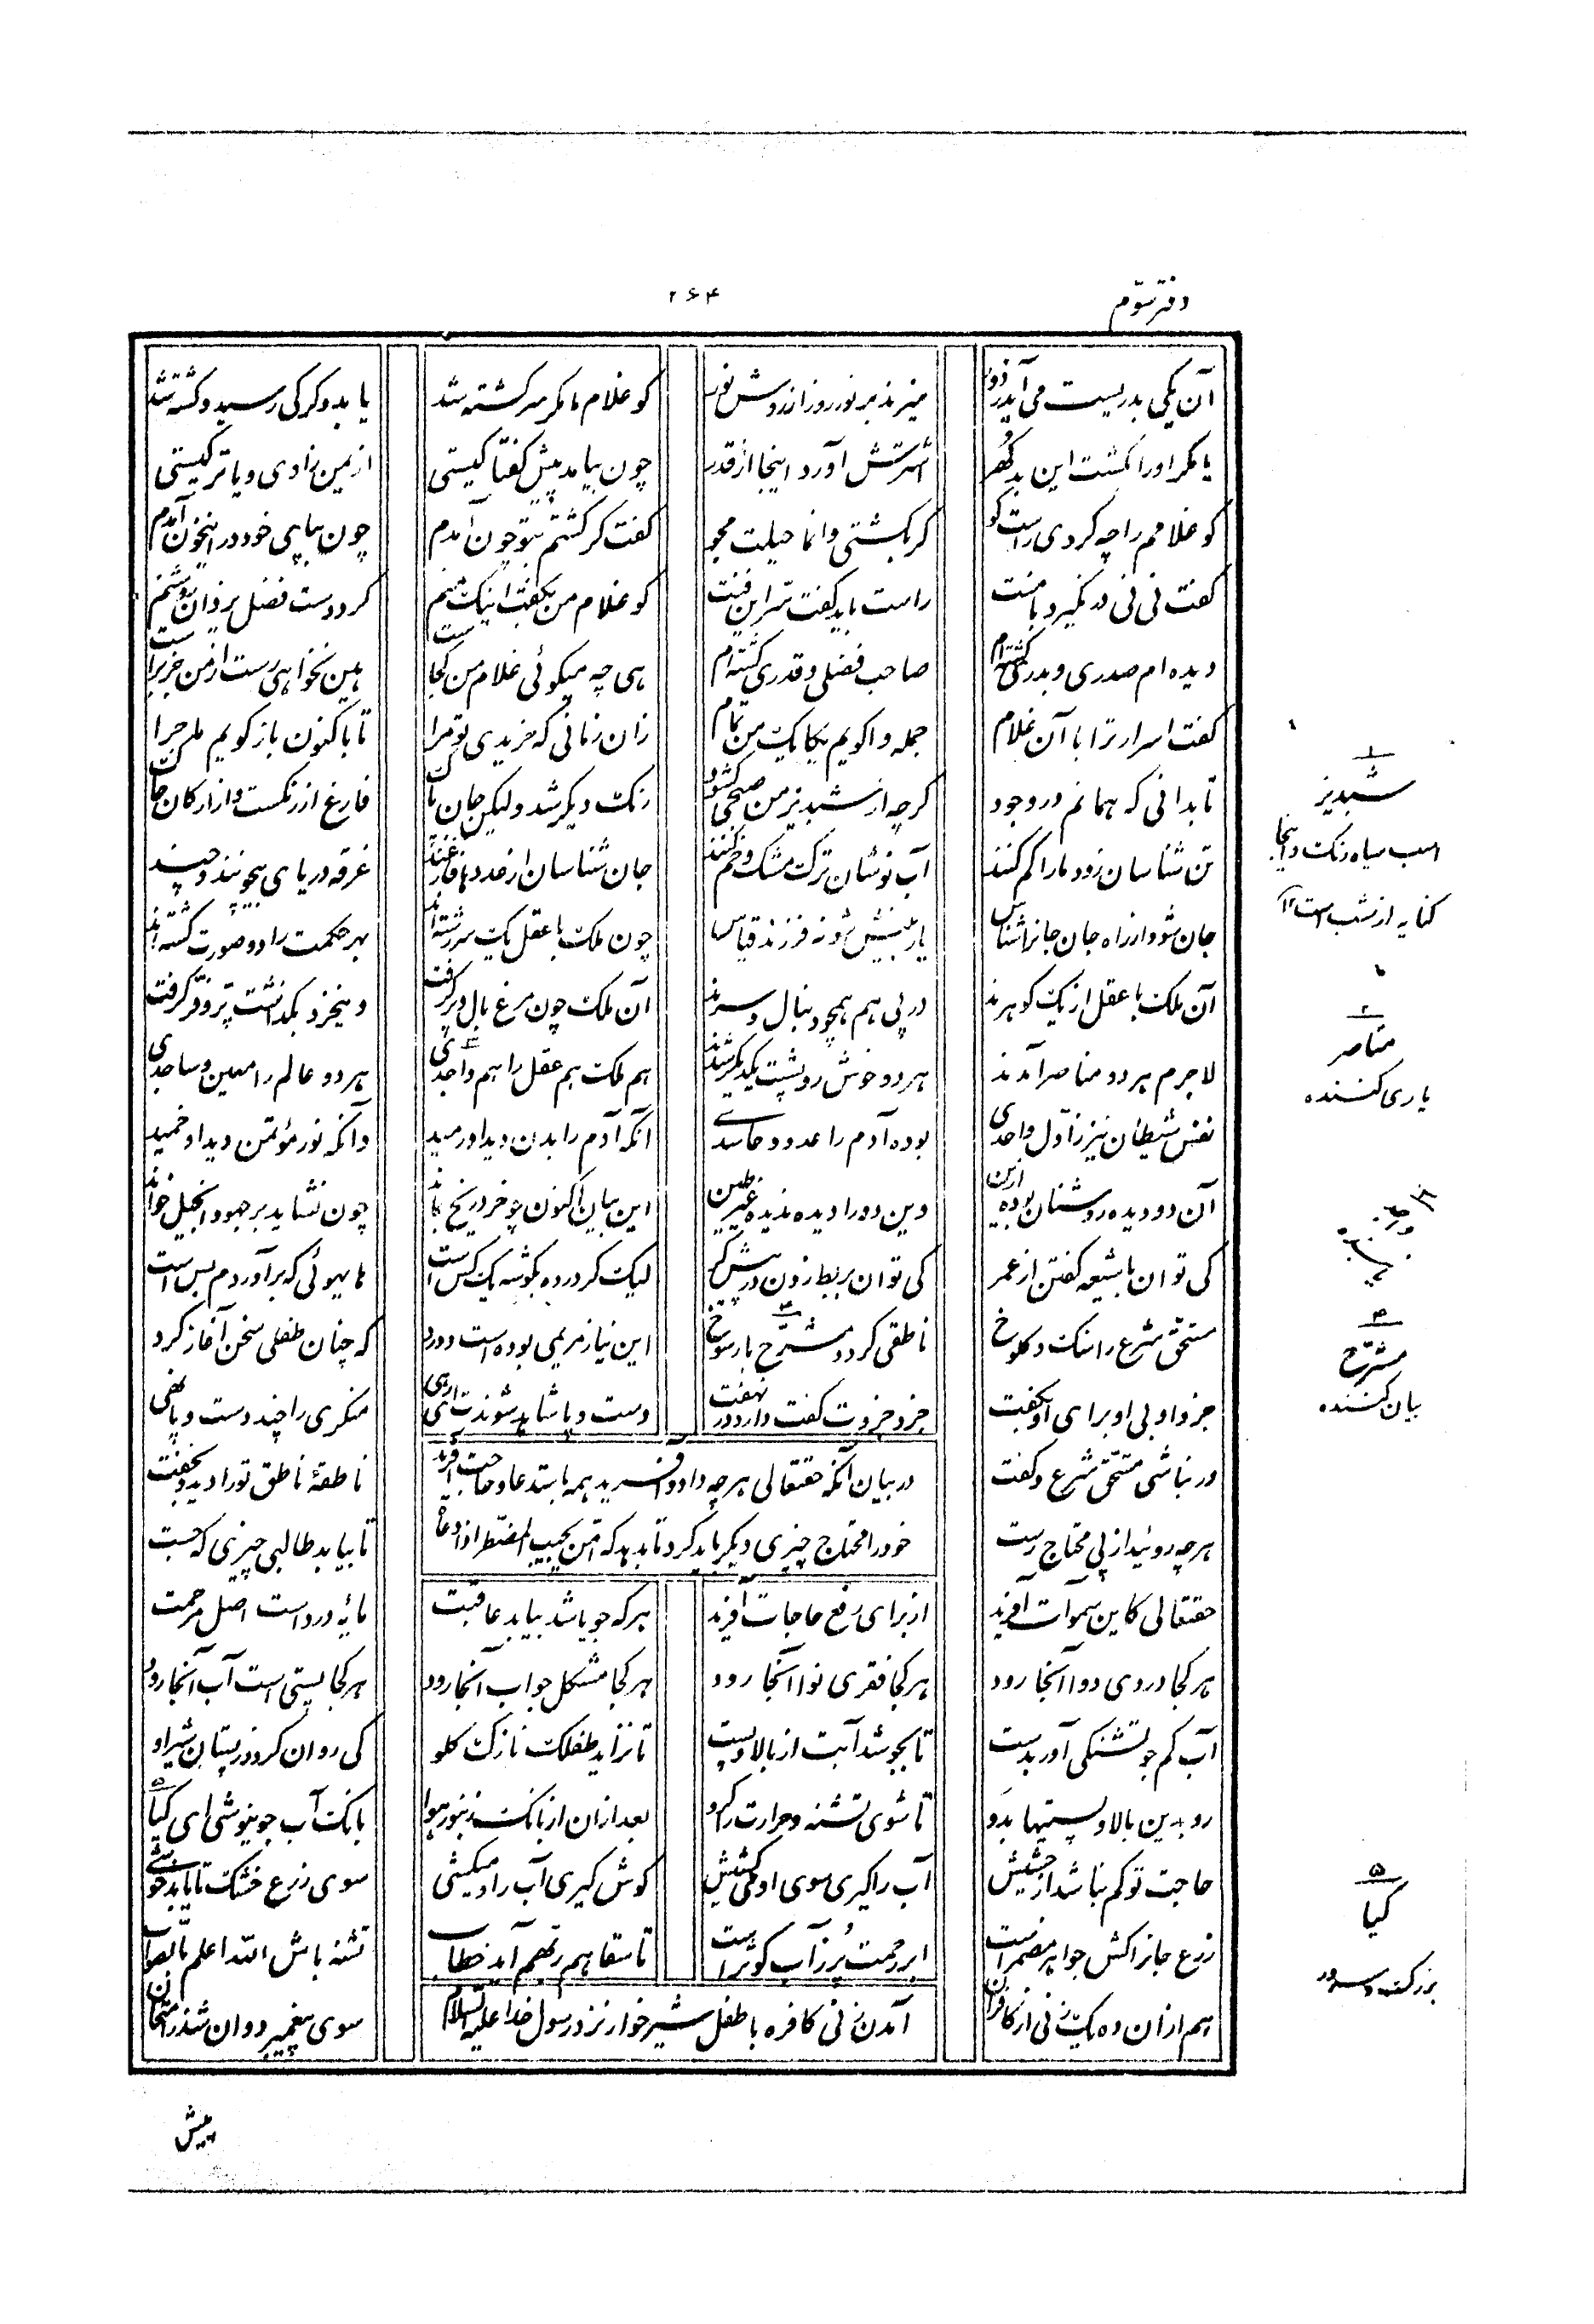 دفتر سوّم ۲۶۴
آن یکی بدریست می آید ز دور میزند بر نور روز از روش نور کو غلام ما مگر سرگشته شد یا بدو گرگی رسید و کشته شد
یا مگر او را بکشت این بدگهر اشترش آورد اینجا از قدر چون بیامد پیش گفتا کیستی از یمن زادی و یا ترکیستی
کو غلامم را چه کردی راست گو گر بکشتی وانما حیلت مجو گفت گر کشتم بتو چون آمدم چون بپای خود در این خون آمدم
گفت نی نی در نگیرد با منت راست باید گفت ترا این فنت کو غلام من بگفت اینک منم کرد دست فضل یزدان روشنم
دیده ام صدری و بدری گشته ام صاحب فضلی و قدری گشته ام هی چه میگوئی غلام من کجاست هین نخواهی رست از من جز براست
گفت اسرار ترا با آن غلام جمله واگویم یکایک من تمام زان زمانی که خریدی تو مرا تا باکنون باز گویم ماجرا
تا بدانی که همانم در وجود گرچه از شبدیز من صبحی گشود رنگ دیگر شد ولیکن جان پاک فارغ از رنگست و از ارکان خاک
تن شناسان زود ما را گم کنند آب نوشان ترک مشک و خم کنند جان شناسان از عددها فارغند غرقه دریای بیچونند و چند
جان شو و از راه جان جانرا شناس یار بینش شو نه فرزند قیاس چون ملک با عقل یک سررشته اند بهر حکمت را دو صورت گشته اند
آن ملک با عقل از یک گوهرند در پی هم همچو دنبال و سرند آن ملک چون مرغ بال و پر گرفت وین خرد بگذاشت پر و فر گرفت
لاجرم هر دو مناصر آمدند هر دو خوش رو پشت یکدیگر شدند هم ملک هم عقل را هم واجدی هر دو عالم را معین و ساجدی
نفس شیطان نیز ز اوّل واحدی بوده آدم را عدو و حاسدی آنکه آدم را بدن دید او رمید وانکه نور مؤتمن دید او خمید
آن دو دیده روشنان بوده ازین وین دو را دیده ندیده غیر طین این بیان اکنون چو خر در یخ بماند چون نشاید بر جهود انجیل خواند
کی توان با شیعه گفتن از عمر کی توان بربط زدن در پیش کر لیک گر در ده بگوشه یک کس است هایهوئی که برآوردم بس است
مستحق شرع را سنگ و کلوخ ناطقی گردد مشرّح با رسوخ این نیاز مریمی بوده است و درد که چنان طفلی سخن آغاز کرد
جزو او بی او برای او بگفت جزو جزوت گفت دارد در نهفت دست و پا شاهد شوندت ای رهی منکری را چند دست و پا نهی
ور نباشی مستحق شرع و گفت ناطقهٔ ناطق تو را دید و بخفت
در بیان آنکه حقتعالی هر چه داد و آفرید همه باستدعا و حاجت آفرید
خود را محتاج چیزی دیگر باید کرد تا بدهد که امّن یجیب المضطر اذا دعاه
هر چه روئید از پی محتاج رست تا بیابد طالبی چیزی که جست
حقتعالی کاین سموات آفرید از برای رفع حاجات آفرید هر که جویا شد بیابد عاقبت مایه درد است اصل مرحمت
هر کجا دردی دوا آنجا رود هر کجا فقری نوا آنجا رود هر کجا مشکل جواب آنجا رود هر کجا پستی است آب آنجا رود
آب کم جو تشنگی آور بدست تا بجوشد آبت از بالا و پست تا نزاید طفلک نازک گلو کی روان گردد ز پستان شیر او
رو بدین بالا و پستیها بدو تا شوی تشنه و حرارت را گرو بعد از آن از بانگ زنبور هوا بانگ آب جو بنوشی ای کیا
حاجت تو کم نباشد از حشیش آب را گیری سوی او میکشیش گوش گیری آب را و میکشی سوی زرع خشک تا یابد خوشی
زرع جانرا کش جواهر مضمر است ابر رحمت پر ز آب کوثر است تا سقاهم ربهم آید خطاب تشنه باش الله اعلم بالصواب
آمدن زنی کافره با طفل شیرخوار نزد رسول خدا علیه السّلام
هم از آن ده یک زنی از کافران سوی پیغمبر دوان شد ز امتحان
۱
شبدیز
اسب سیاه رنگ و اینجا
کنایه از شب است ۱۲
۲
مناصر
یاری کننده
۳
۴
مشرّح
بیان کننده
۵
کیا
بزرگ و سرور
پیش